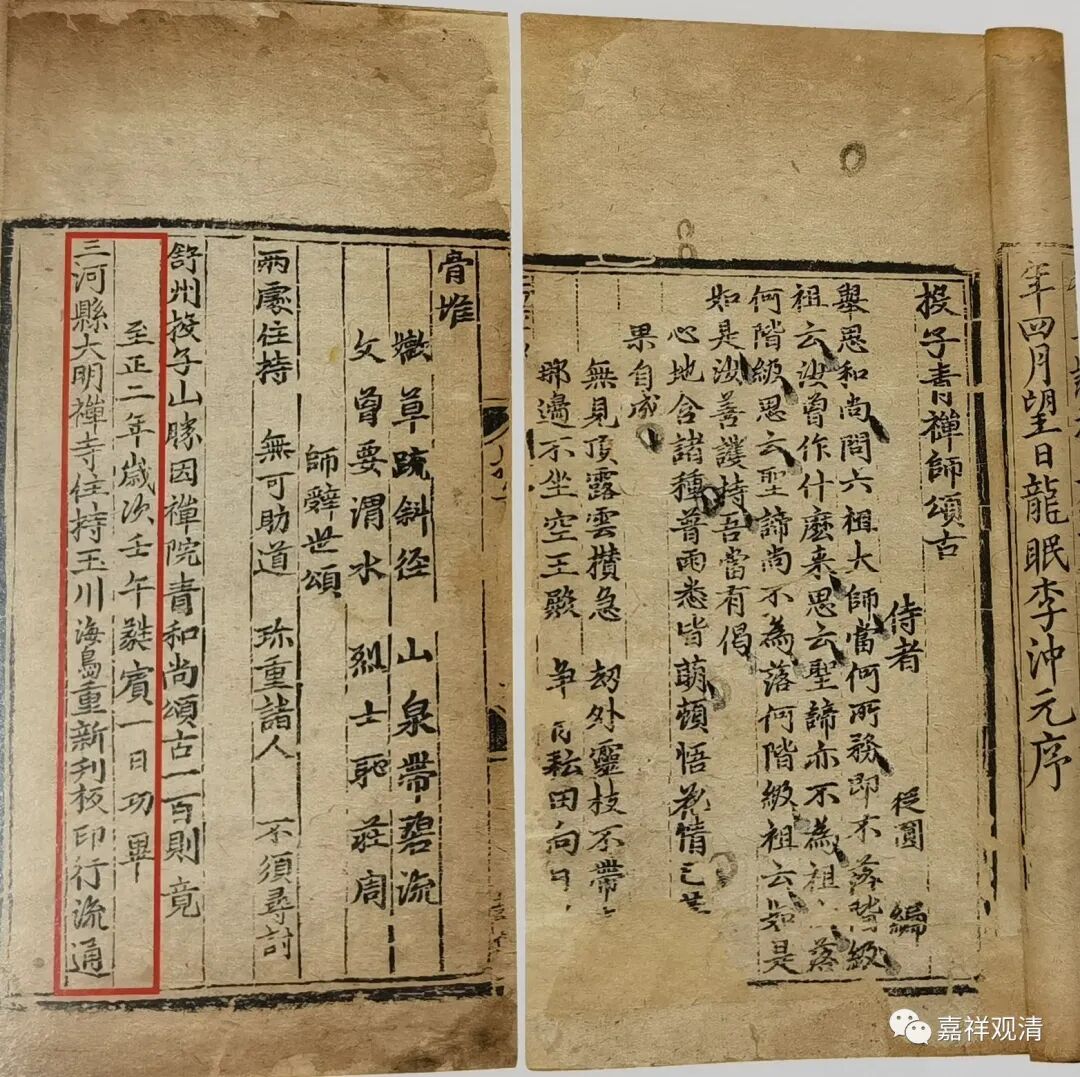 年四月望日龍眠李沖元序
投子青禪師頌古
侍者 從圓 編
舉思和尚問六祖大師當何所務即不落階級
祖云汝曾作什麽来思云聖諦亦不為祖落
何階級思云聖諦尚不為落何階級祖云如是
如是汝善護持吾當有偈
心地含諸種普雨悉皆萌頓悟花情已
果自成
無見頂露雲攅急 劫外靈枝不帶
那邉不坐空王殿 争肯耘田向日
骨堆
草疏斜径 山泉帶碧流
文曾要渭水 烈士恥莊周
師辤世頌
兩處住持 無可助道 珎重諸人 不須尋討
舒州投子山勝因禪院青和尚頌古一百則 竟
至正二年歲次壬午蕤賓一日功畢
三河縣大明禪寺住持玉川海島重新刋板印行流通
嘉祥观清